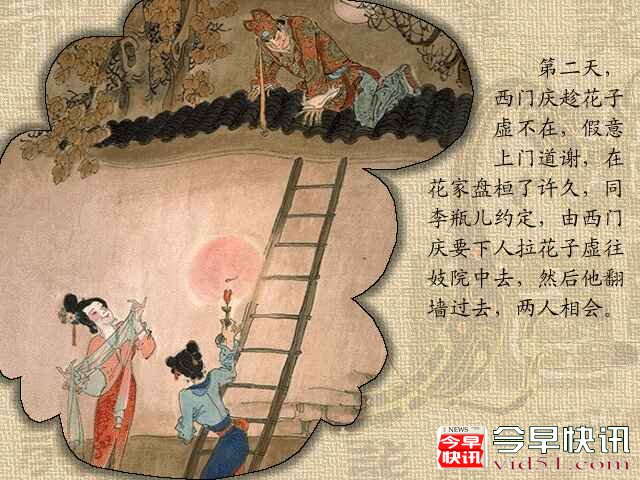 第二天，
西门庆趁花子
虚不在，假意
上门道谢，在
花家盘桓了许久，同
李瓶儿约定，由西门
庆要下人拉花子虚往
妓院中去，然后他翻
墙过去，两人相会。
NEWS
今早
快讯
今早快讯
vid51.com